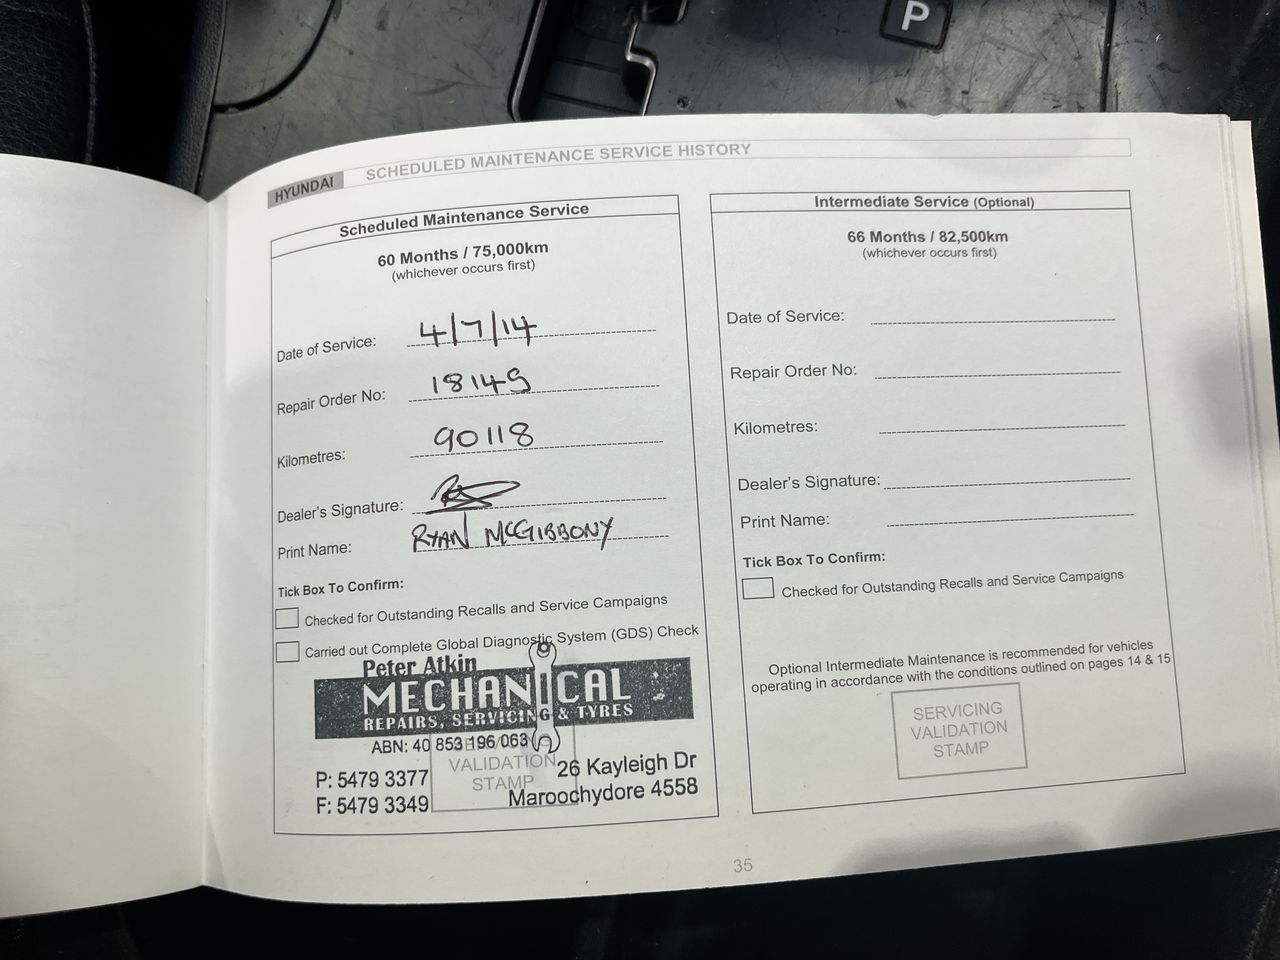 P
HYUNDAI
SCHEDULED MAINTENANCE SERVICE HISTORY
Scheduled Maintenance Service
60 Months / 75,000km
(whichever occurs first)
Date of Service: 4/7/14
Repair Order No: 18149
Kilometres: 90118
Dealer's Signature:
Print Name: RYAN McGIBBONY
Tick Box To Confirm:
Checked for Outstanding Recalls and Service Campaigns
Carried out Complete Global Diagnostic System (GDS) Check
Peter Atkin
MECHANICAL
REPAIRS, SERVICING & TYRES
ABN: 40 853 196 063
VALIDATION
STAMP
P: 5479 3377
F: 5479 3349
26 Kayleigh Dr
Maroochydore 4558
Intermediate Service (Optional)
66 Months / 82,500km
(whichever occurs first)
Date of Service:
Repair Order No:
Kilometres:
Dealer's Signature:
Print Name:
Tick Box To Confirm:
Checked for Outstanding Recalls and Service Campaigns
Optional Intermediate Maintenance is recommended for vehicles
operating in accordance with the conditions outlined on pages 14 & 15
SERVICING
VALIDATION
STAMP
35